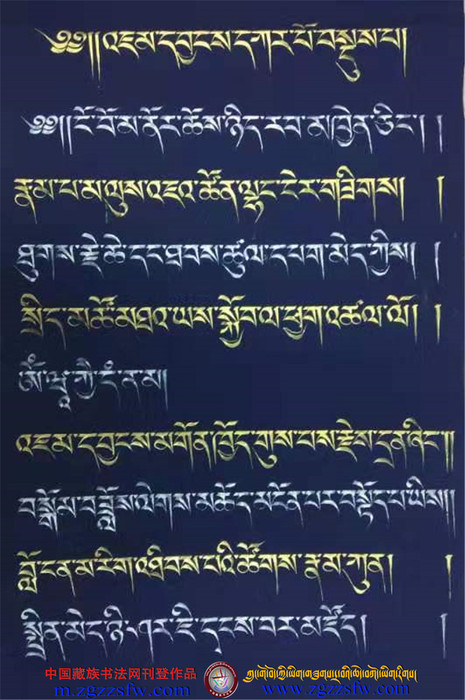 ༄༅།།འཇམ་དབྱངས་དཀར་པོ་བསྡུས་པ།
༄༅།།ངོ་བོ་མ་ནོར་ཆོས་ཉིད་རབ་མཁྱེན་ཅིང་། །
རྣམ་པ་མ་ལུས་འཇའ་ཚོན་ལྷང་ངེར་གཟིགས། །
ཐུགས་རྗེ་ཆེ་དང་ཐབས་ཚུལ་དཔག་མེད་ཀྱིས། །
སྲིད་མཚོ་མཐའ་ཡས་སྐྱོབ་ལ་ཕྱག་འཚལ་ལོ། །
ཨོཾ་ཝཱ་ཀྱེ་དཾ་ན་མ།
འཇམ་དབྱངས་མགོན་ཁྱོད་གུས་པས་རྗེས་དྲན་ཞིང་།།
བསྒོམ་བཟླས་ལེགས་མཆོད་མངོན་པར་བསྟོད་པ་ཡིས།།
བློ་ངན་མ་རིག་འཐིབས་པའི་ཚོགས་རྣམ་ཀུན། །
སྤྲིན་མེད་ཉི་ཤར་ཇི་དྭངས་བར་མཛོད། །
中国藏族书法网刊登作品
m.zgzzsfw.com www.zgzzsfw.com